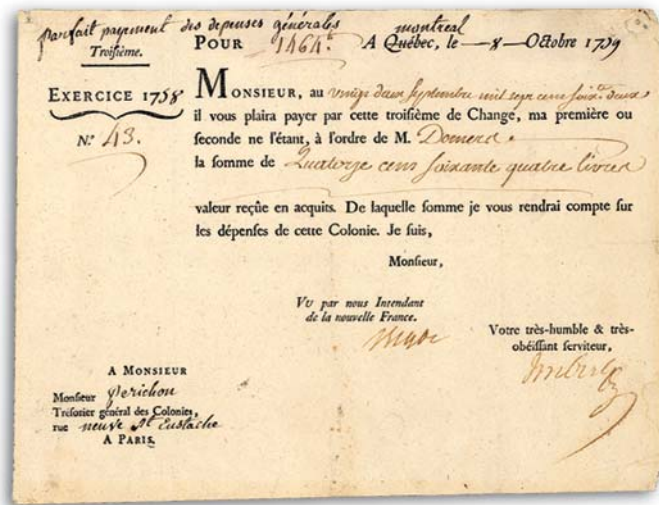 parfait payement des depenses générales
Troisième.
POUR 1464tt A Québec, montreal le — 8 — Octobre 1759
EXERCICE 1758
N.º 43.
MONSIEUR, au vingt deux septembre mil sept cens soixte deux
il vous plaira payer par cette troisième de Change, ma première ou
seconde ne l'étant, à l'ordre de M. Domers
la somme de Quatorze cens soixante quatre livres
valeur reçûe en acquits. De laquelle somme je vous rendrai compte sur
les dépenses de cette Colonie. Je suis,
Monsieur,
VU par nous Intendant
de la nouvelle France.
Bigot
Votre très-humble & très-
obéissant serviteur,
Imbert
A MONSIEUR
Monsieur Perichon
Trésorier général des Colonies,
rue neuve St Eustache
A PARIS.